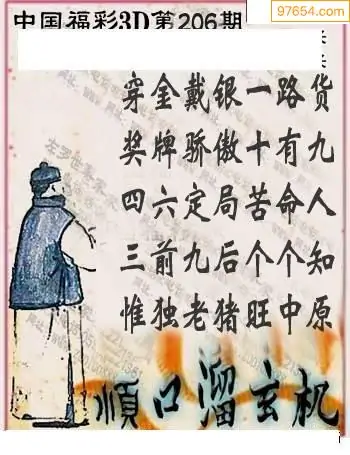 97654.com
中国福彩3D第206期
穿金戴银一路货
奖牌骄傲十有九
四六定局苦命人
三前九后个个知
惟独老猪旺中原
順口溜玄机